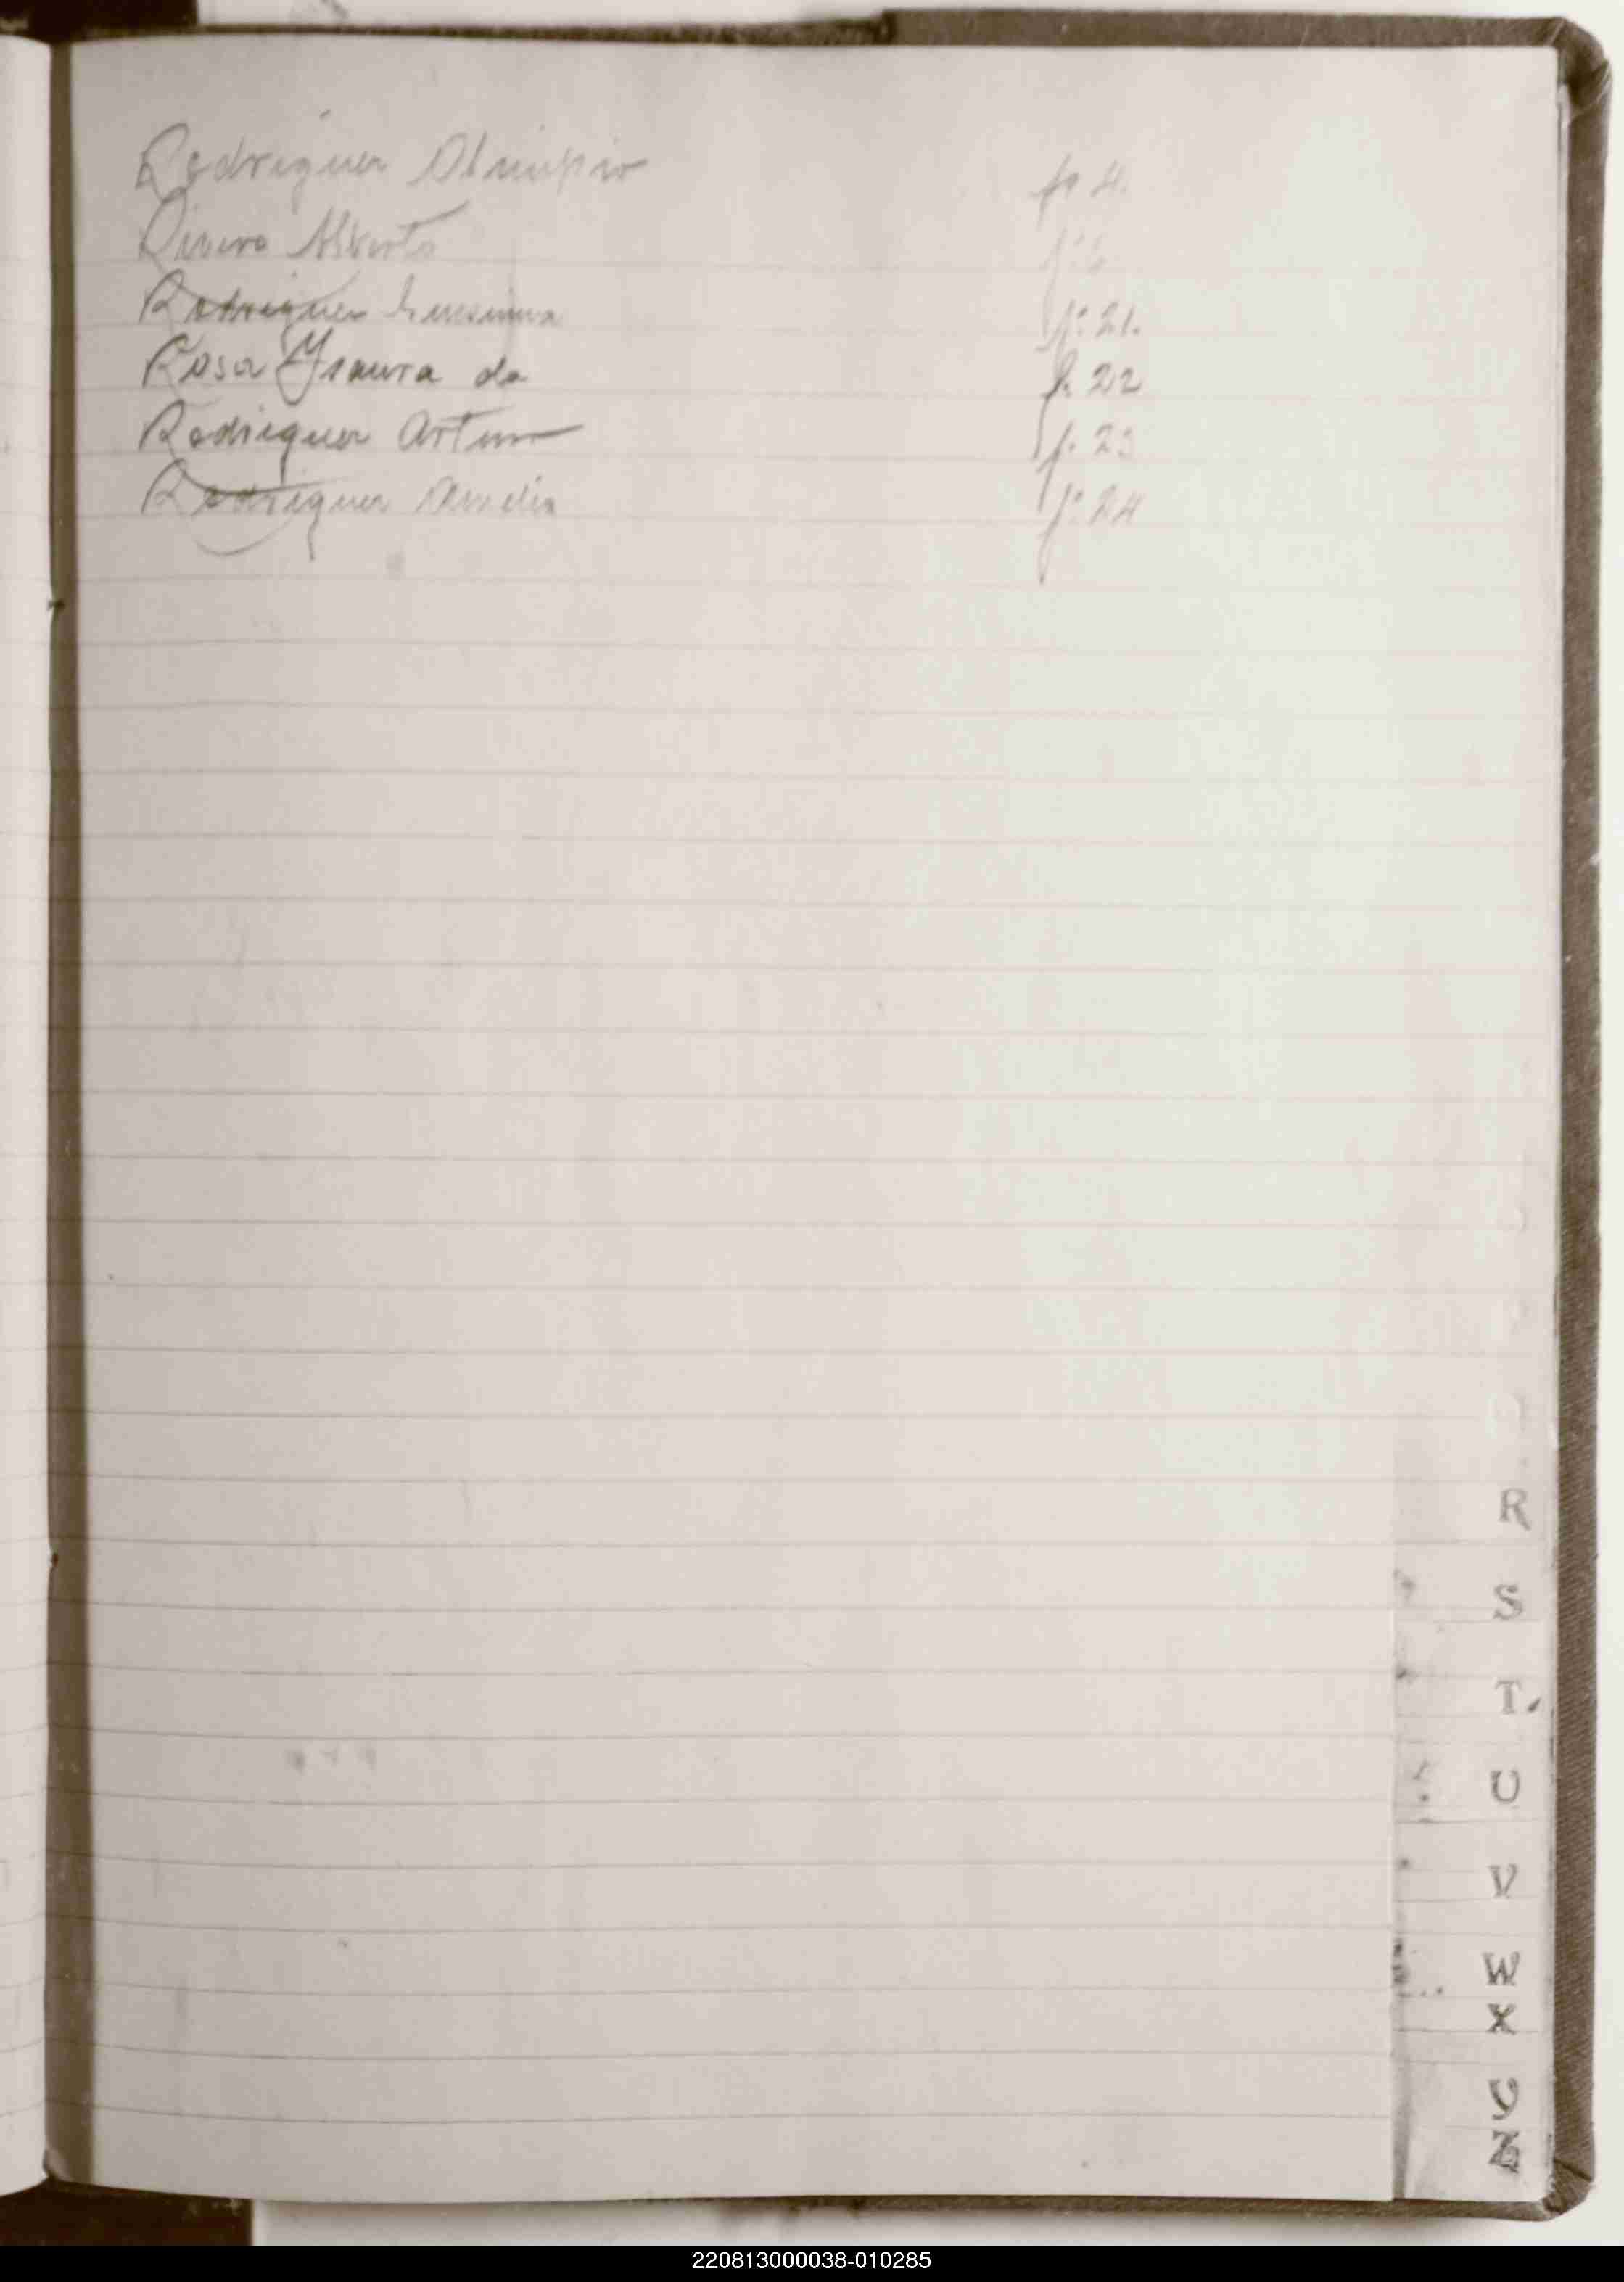 Rodriguez Olimpio fo 4.
Rivero Alberto f:
Rodriguez f: 21.
Rosa Ysaura da f. 22
Rodriguez Artur f. 23
Rodriguez Amelia f: 24
R
S
T.
U
V
W
X
Y
Z
220813000038-010285